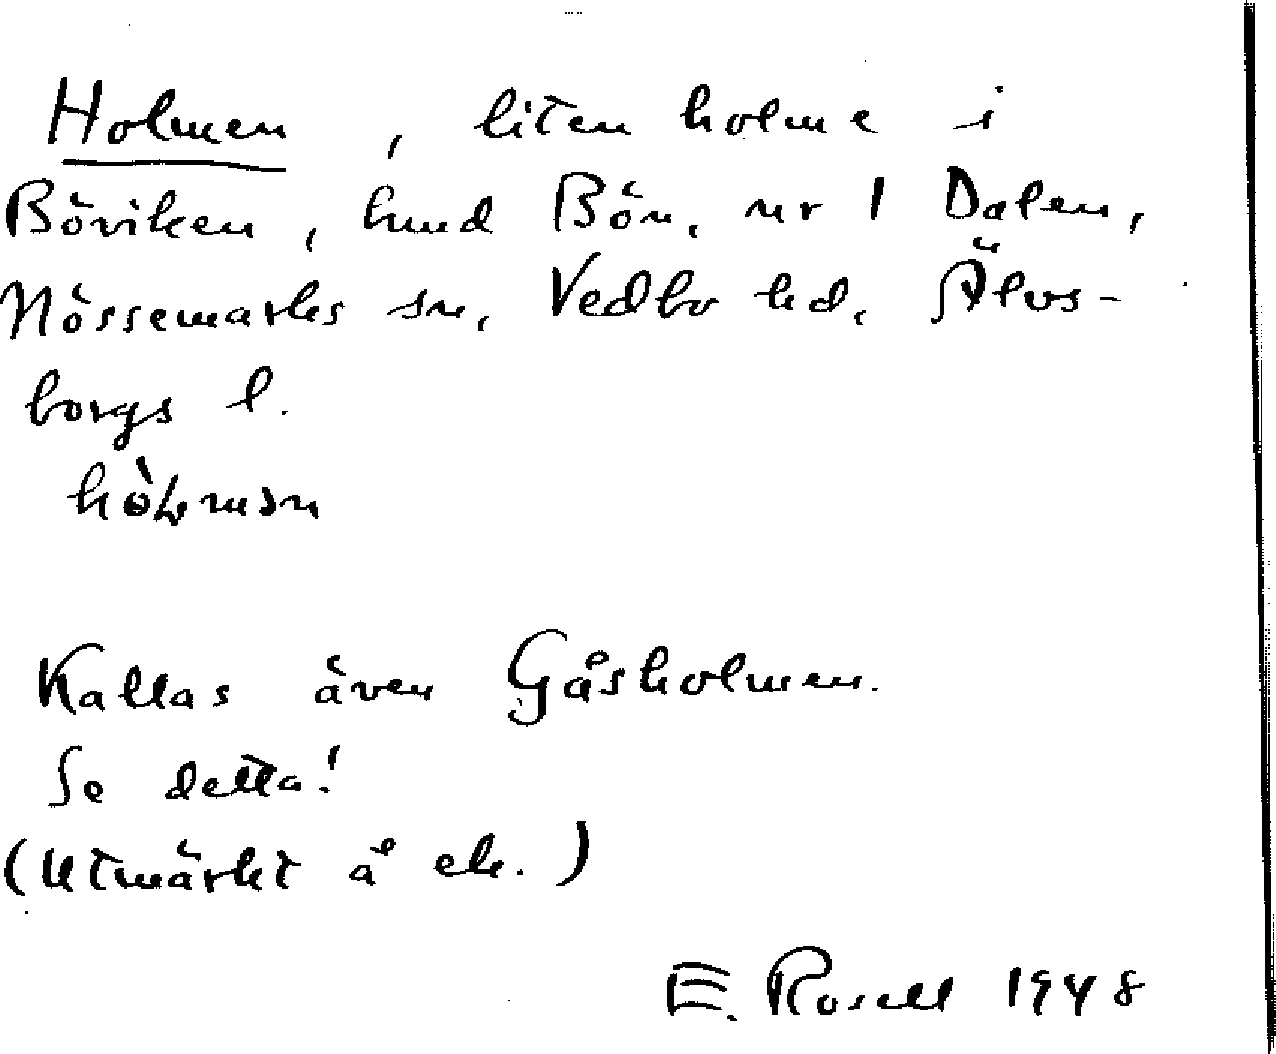 Holmen, liten holme i
Böviken, hmd Bön, nr 1 Dalen,
Nössemarks sn, Vedbo hd, Älvs-
borgs l.
Kallas även Gåsholmen.
Se detta!
(Utmärkt å ek.)
E. Rosell 1948